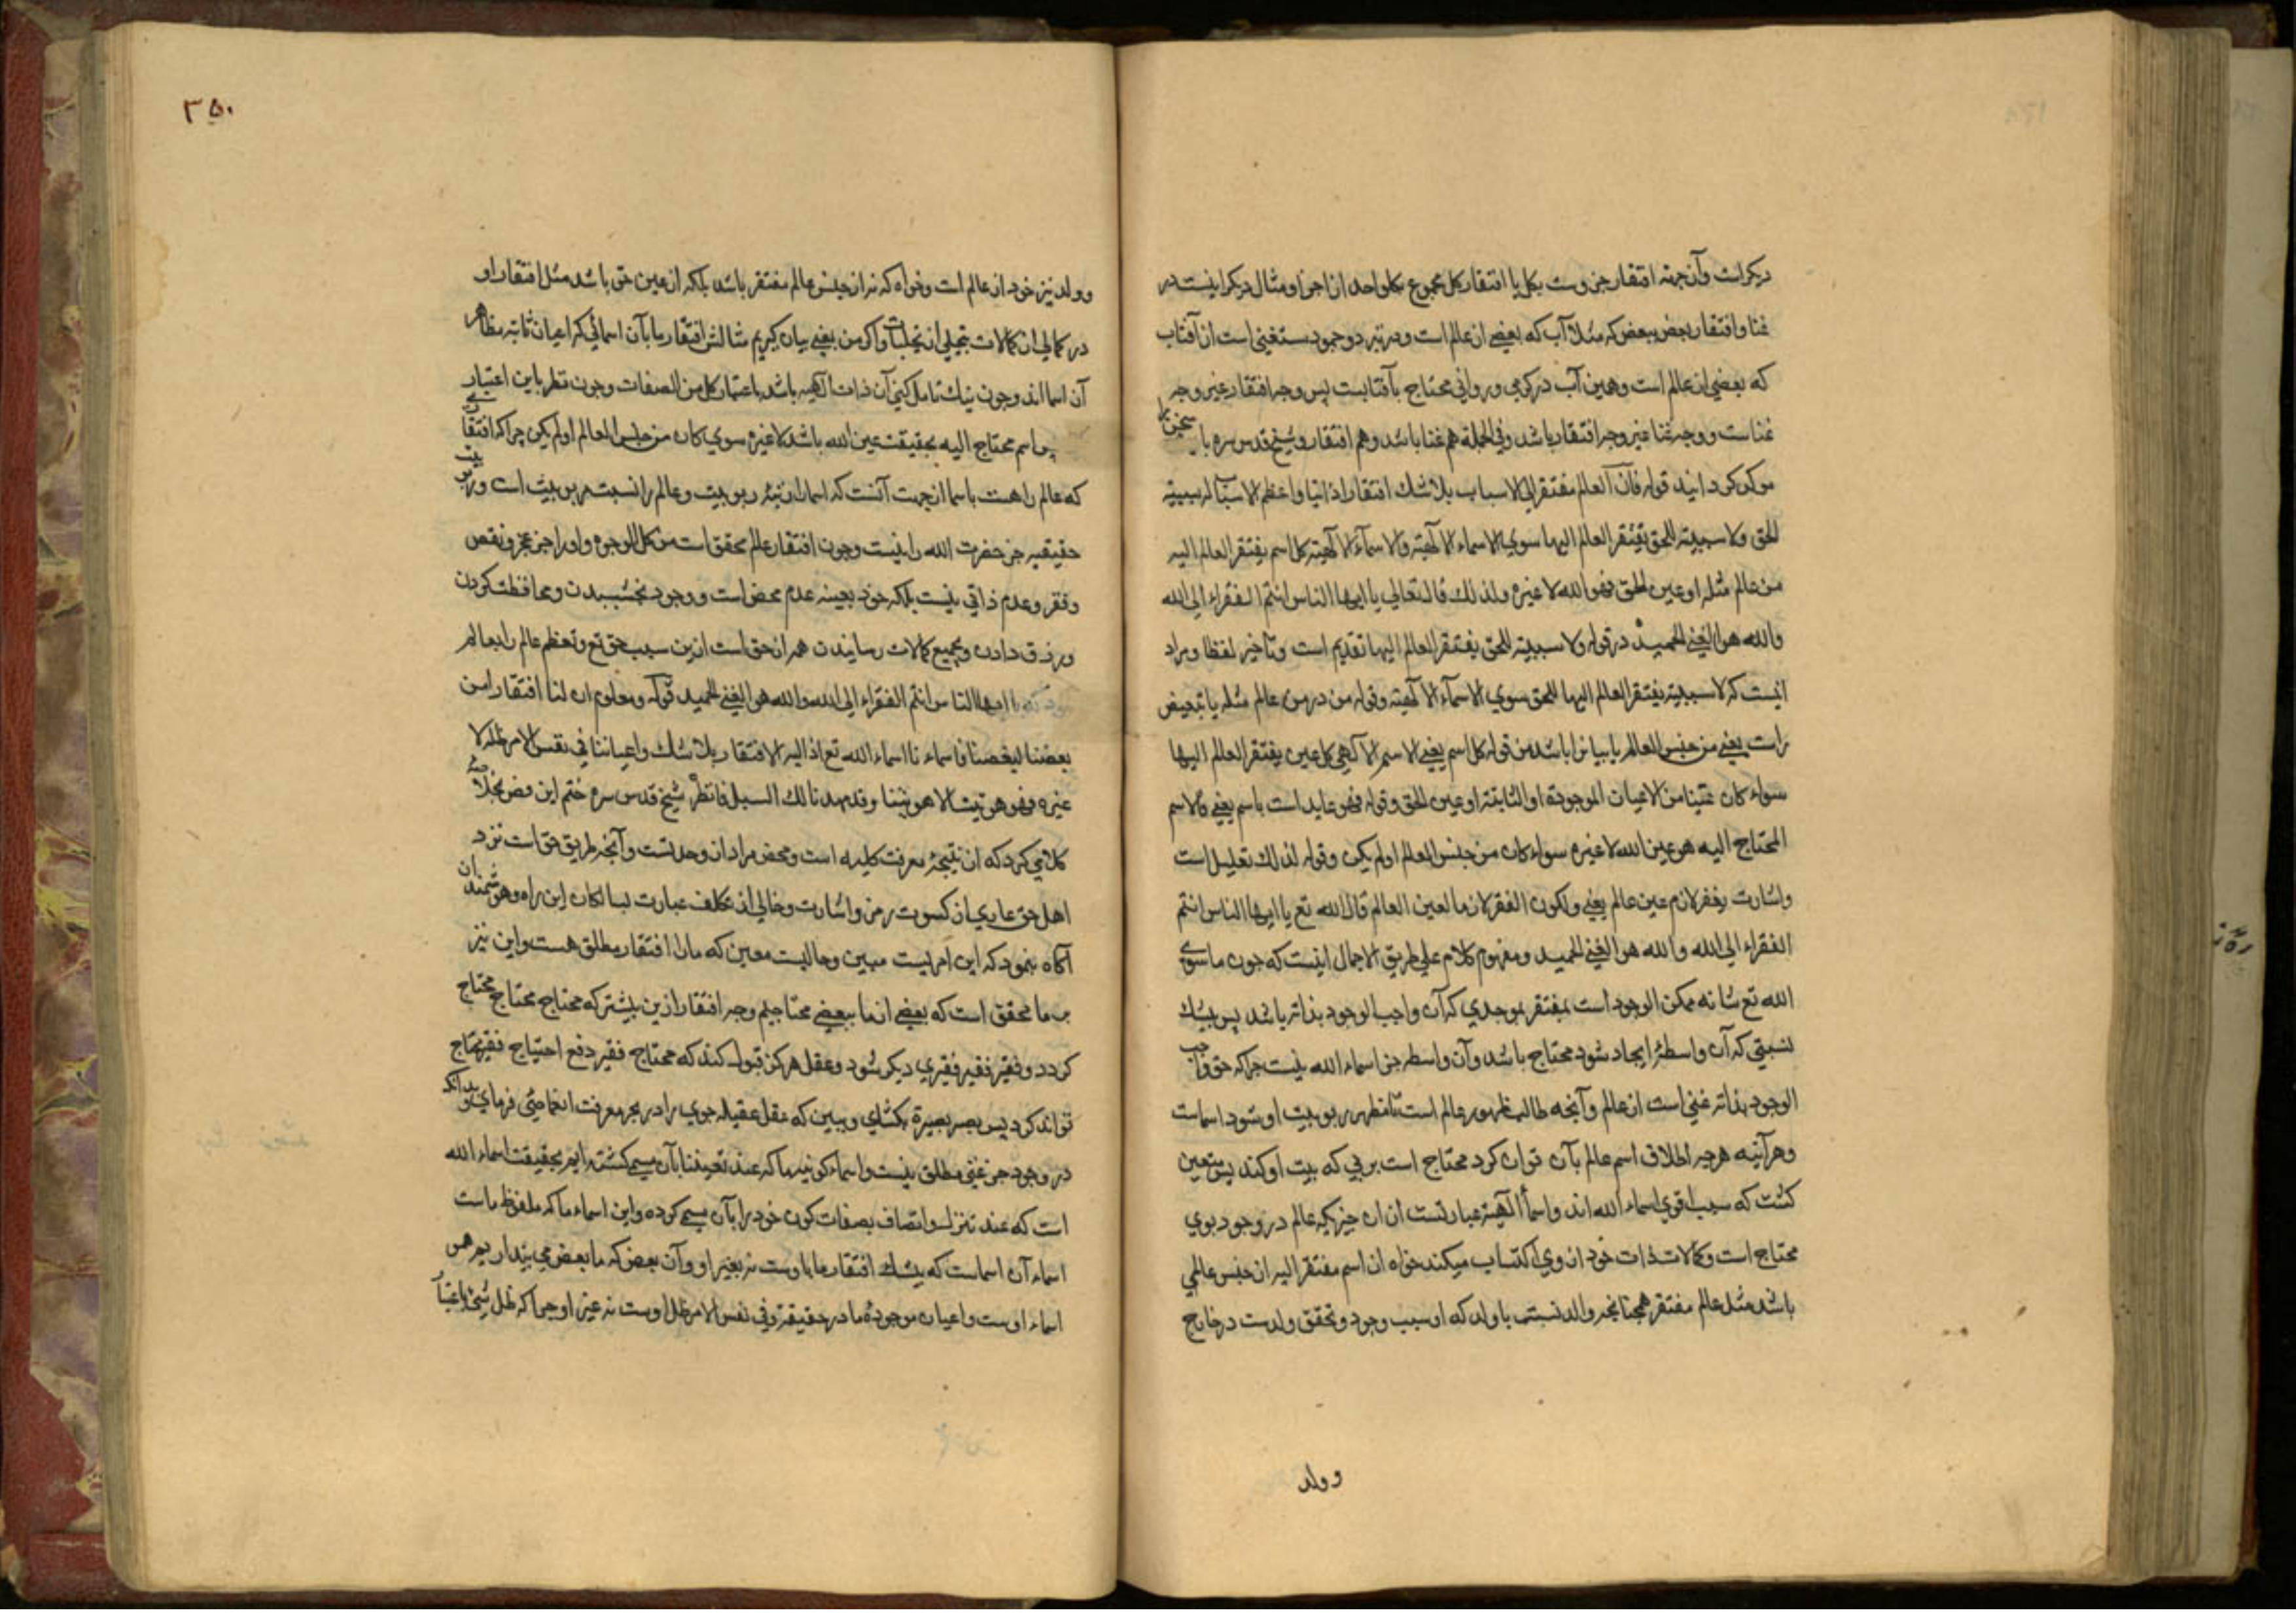 دیکرست وآن جهة افتقار جزوست بکل یا افتقار کل مجموع بکل واحد از اجزا و مثال دیکر اینست در
غنا وافتقار بعض ببعض که مثلا آب که بعضی از عالم است ودر رتبه وجود مستغنی است از آفتاب
که بعضی از عالم است وهمین آب در کرمی وروانی محتاج بآفتابست پس وجه افتقار غیر وجه
غناست ووجه غنا غیر وجه افتقار باشد وفی الجملة هم غنا باشد وهم افتقار وشیخ قدس سره با سخن را
موکد کردانید قوله فان العالم مفتقر الی الاسباب بلاشك افتقارا ذاتیا واعظم الاسباب له سببیة
الحق ولا سببیة للحق یفتقر العالم الیها سوی الاسماء الالهیة والاسماء الالهیة کل اسم یفتقر العالم الیه
من عالم مثله او عین الحق فهو الله لا غیره ولذلك قال تعالی یا ایها الناس انتم الفقراء الی الله
والله هو الغنی الحمید در قوله ولا سببیة للحق یفتقر العالم الیها تقدیم است وتاخیر لفظا ومراد
اینست که لا سببیة یفتقر العالم الیها للحق سوی الاسماء الالهیة وقوله من در من عالم مثله یا تبعیض
راست یعنی من جنس العالم یا بیان را باشد من قوله کل اسم یعنی الاسم الالهی کل عین یفتقر العالم الیها
سواء کان عینا من الاعیان الموجودة او الثابتة او عین الحق وقوله فهو عاید است باسم یعنی فالاسم
المحتاج الیه هو عین الله لا غیره سواء کان من جنس العالم او لم یکن وقوله لذلك تعلیل است
واشارت بفقر لازم عین عالم یعنی ولکون الفقر لازما لعین العالم قال الله تع یا ایها الناس انتم
الفقراء الی الله والله هو الغنی الحمید ومفهوم کلام علی طریق الاجمال اینست که چون ما سوی
الله تع شانه ممکن الوجود است مفتقر بموجدی که آن واجب الوجود بذاته باشد پس بیشك
نسبتی که آن واسطهٔ ایجاد شود محتاج باشد وآن واسطه جز اسماء الله نیست چرا که حق واجب
الوجود بذاته غنی است از عالم وآنچه طالب ظهور عالم است تا مظهر ربوبیت او شود اسماست
وهرآینه هرچه اطلاق اسم عالم بآن توان کرد محتاج است بربی که ربیت او کند پس متعین
کشت که سبب اقوی اسماء الله اند واسماء الهیة عبارتست از آن چیزی که عالم در وجود بوی
محتاج است وکمالات ذات خود از وی اکتساب میکند خواه ان اسم مفتقر الیه از جنس عالمی
باشد مثل عالم مفتقر همچنانچه والد نسبت با ولد که او سبب وجود وتحقق ولدست در خارج
وولد
۳۵۰
وولد نیز خود از عالم است وخواه که نه از جنس عالم مفتقر باشد بلکه از عین حق باشد مثل افتقار او
در کمالی از کمالات بتجلی از تجلیات واکر من بعضی بیان کریم مثالش افتقار ما بآن اسمائی که اعیان ثابته مظاهر
آن اسما اند وچون نیك تامل کنی آن ذات الهیه باشد باعتبار کل من الصفات وچون نظر باین اعتبار
اسم محتاج الیه بحقیقت عین الله باشد لا غیره سوی کان من جنس العالم او لم یکن چرا که افتقاری
که عالم راهست باسما از جهت آنست که اسما را رتبهٔ ربوبیت وعالم را نسبت مربوبیت است وربوبیت
حقیقیه جز حضرت الله را نیست وچون افتقار عالم محقق است من کل الوجوه واو را جز عجز ونقص
وفقر وعدم ذاتی نیست بلکه خود بعینه عدم محض است ووجود بخشیدن ومحافظت کردن
ورزق دادن وبجمیع کمالات رسانیدن همه از حق است ازین سبب حق تع وتعظم عالم را بعالم
یا ایها الناس انتم الفقراء الی الله والله هو الغنی الحمید قوله ومعلوم ان لنا افتقارا من
بعضنا لبعضنا فاسماءنا اسماء الله تع اذ الیه الافتقار بلا شك واعیاننا فی نفس الامر ظله لا
غیره فهو هویتنا لا هویتنا وقد مهدنا لك السبیل فانظر شیخ قدس سره ختم این فص بخلاصهٔ
کلامی کرد که آن نتیجهٔ معرفت کلیه است ومحض مراد از وحدتست وآنچه طریق حق است نزد
اهل حق عاری از کسوت رمز واشارت وخالی از تکلف عبارت لسالکان این راه وهوشمندان
آکاه نمود که این امریست مبین وحالیست معین که ما را افتقار مطلق هست واین نیز
بر ما محقق است که بعضی از ما ببعضی محتاجیم وجه افتقار ازین بیشتر که محتاج محتاج محتاج
کردد وفقیر فقیر فقیری دیکر شود وعقل هرکز قبول کند که محتاج فقیر دفع احتیاج فقیر محتاج
تواند کرد پس بصر بصیرة بکشای وببین که عقل عقیله جوی را در بحر معرفت انغماسی فرمای وبدانکه
در وجود جز غنی مطلق نیست واسماء کونیه ما که عند تعیننا بآن مسمی کشته ایم بحقیقت اسماء الله
است که عند تنزله واتصاف بصفات کون خود را بآن مسمی کرده واین اسماء ما که ملفوظ ماست
اسماء آن اسماست که بیشك افتقار ما باوست نه بغیر او وآن بعض که ما بعض می پنداریم هم
اسماء اوست واعیان موجودهٔ ما در حقیقة وفی نفس الامر ظل اوست نه غیر او چرا که ظل شیء باعتبار